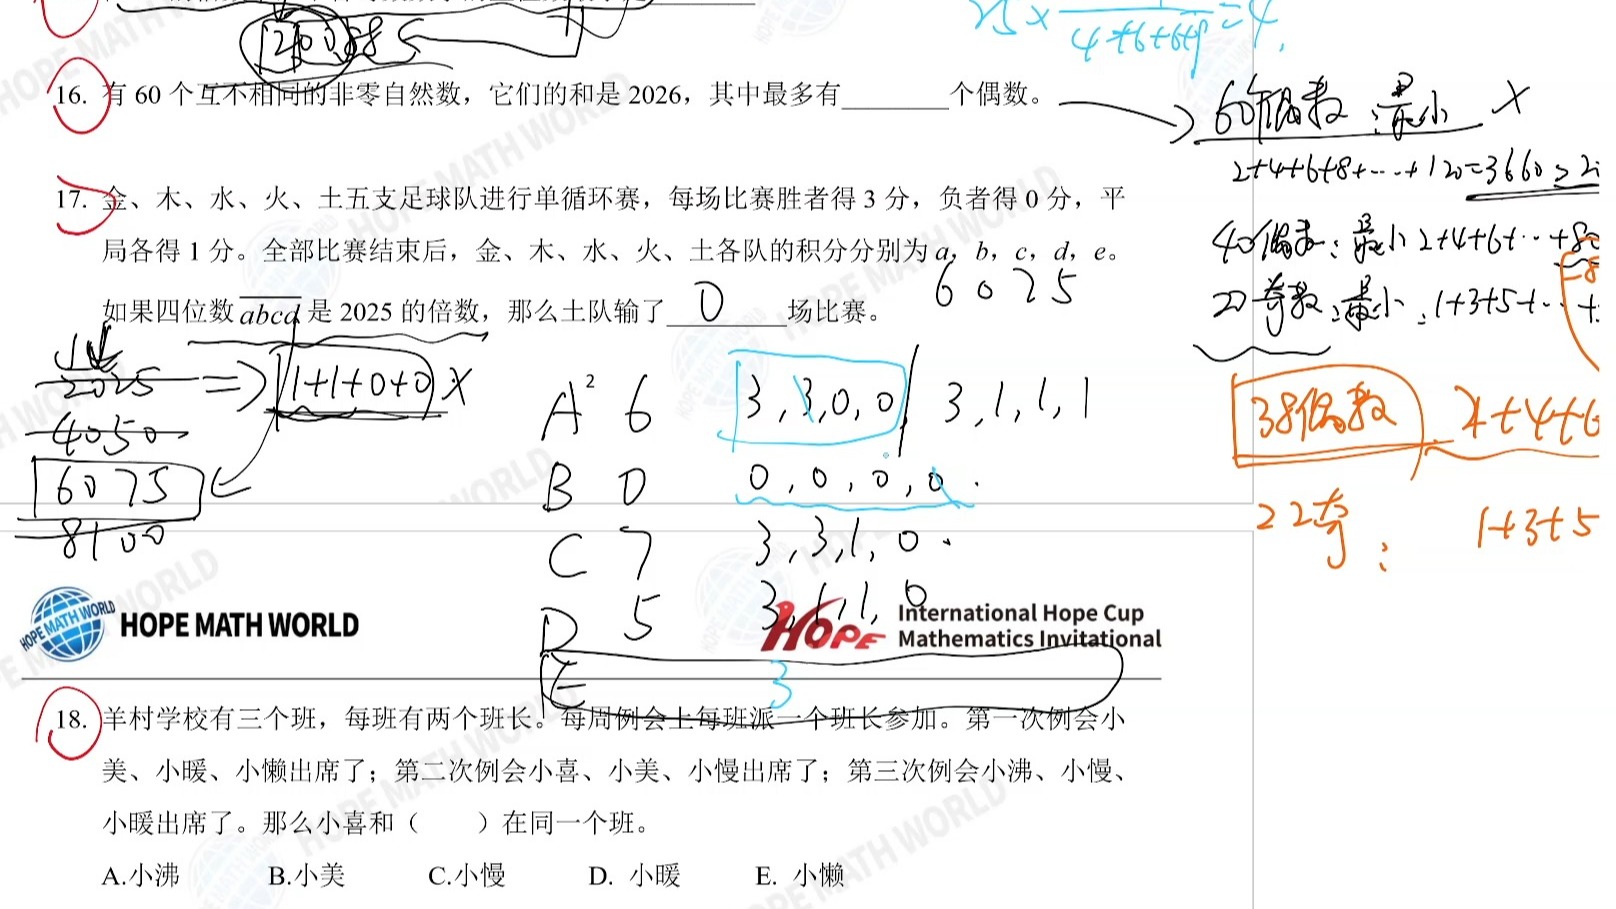 25 × 1/(4+6+6+9) = 4
16. 有 60 个互不相同的非零自然数，它们的和是 2026，其中最多有________个偶数。
60个偶数：最小 ×
2+4+6+8+…+120=3660>2
17. 金、木、水、火、土五支足球队进行单循环赛，每场比赛胜者得 3 分，负者得 0 分，平
局各得 1 分。全部比赛结束后，金、木、水、火、土各队的积分分别为 a，b，c，d，e。
40偶数：最小 2+4+6+…+80
6075
如果四位数 abcd 是 2025 的倍数，那么土队输了 0 场比赛。
22奇数：最小：1+3+5+…+
2025 => 1+1+0+0 ×
4050
6075
8100
A 6 3,3,0,0 / 3,1,1,1
B 0 0,0,0,0.
C 7 3,3,1,0.
D 5 3,1,1,0
E 3
38偶数 2+4+6
22奇： 1+3+5
HOPE MATH WORLD
HOPE MATH WORLD
HOPE
International Hope Cup
Mathematics Invitational
18. 羊村学校有三个班，每班有两个班长。每周例会上每班派一个班长参加。第一次例会小
美、小暖、小懒出席了；第二次例会小喜、小美、小慢出席了；第三次例会小沸、小慢、
小暖出席了。那么小喜和（ ）在同一个班。
A.小沸 B.小美 C.小慢 D. 小暖 E. 小懒